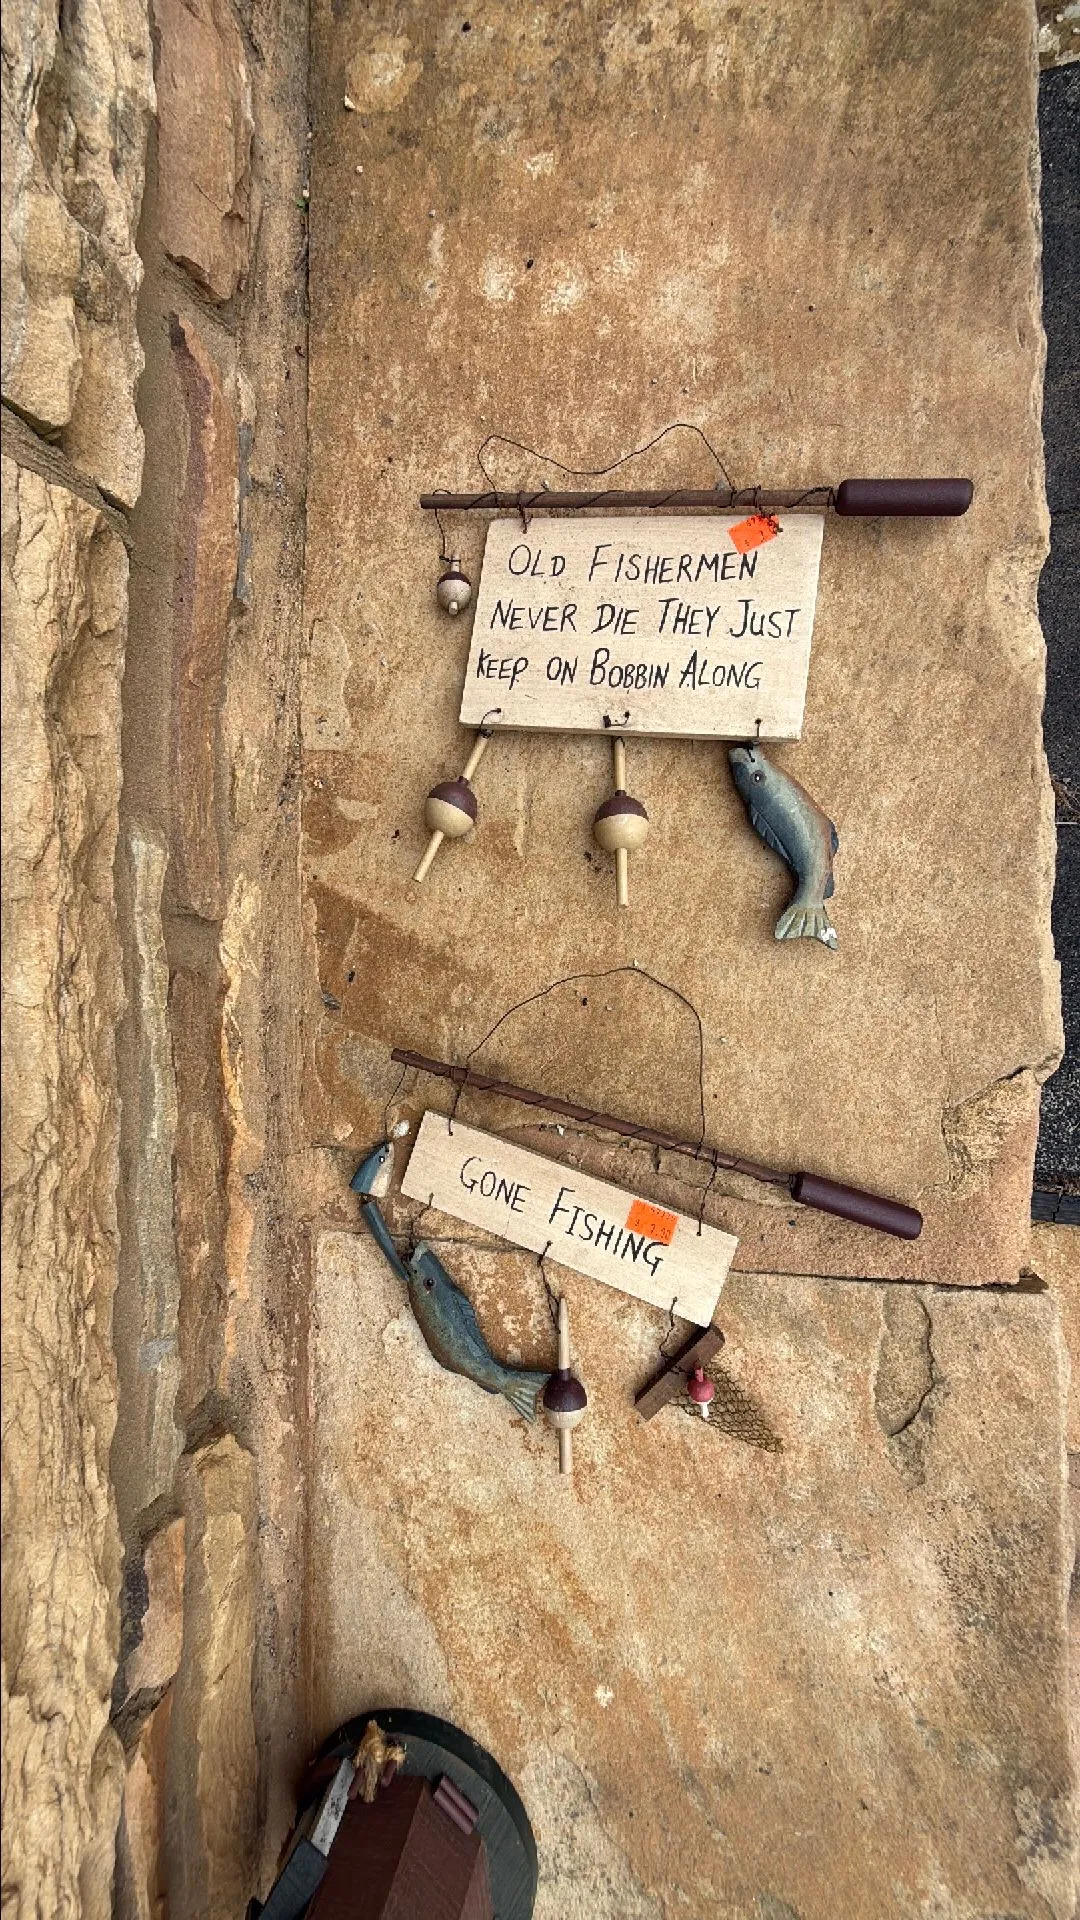 OLD FISHERMEN
NEVER DIE THEY JUST
KEEP ON BOBBIN ALONG
GONE FISHING